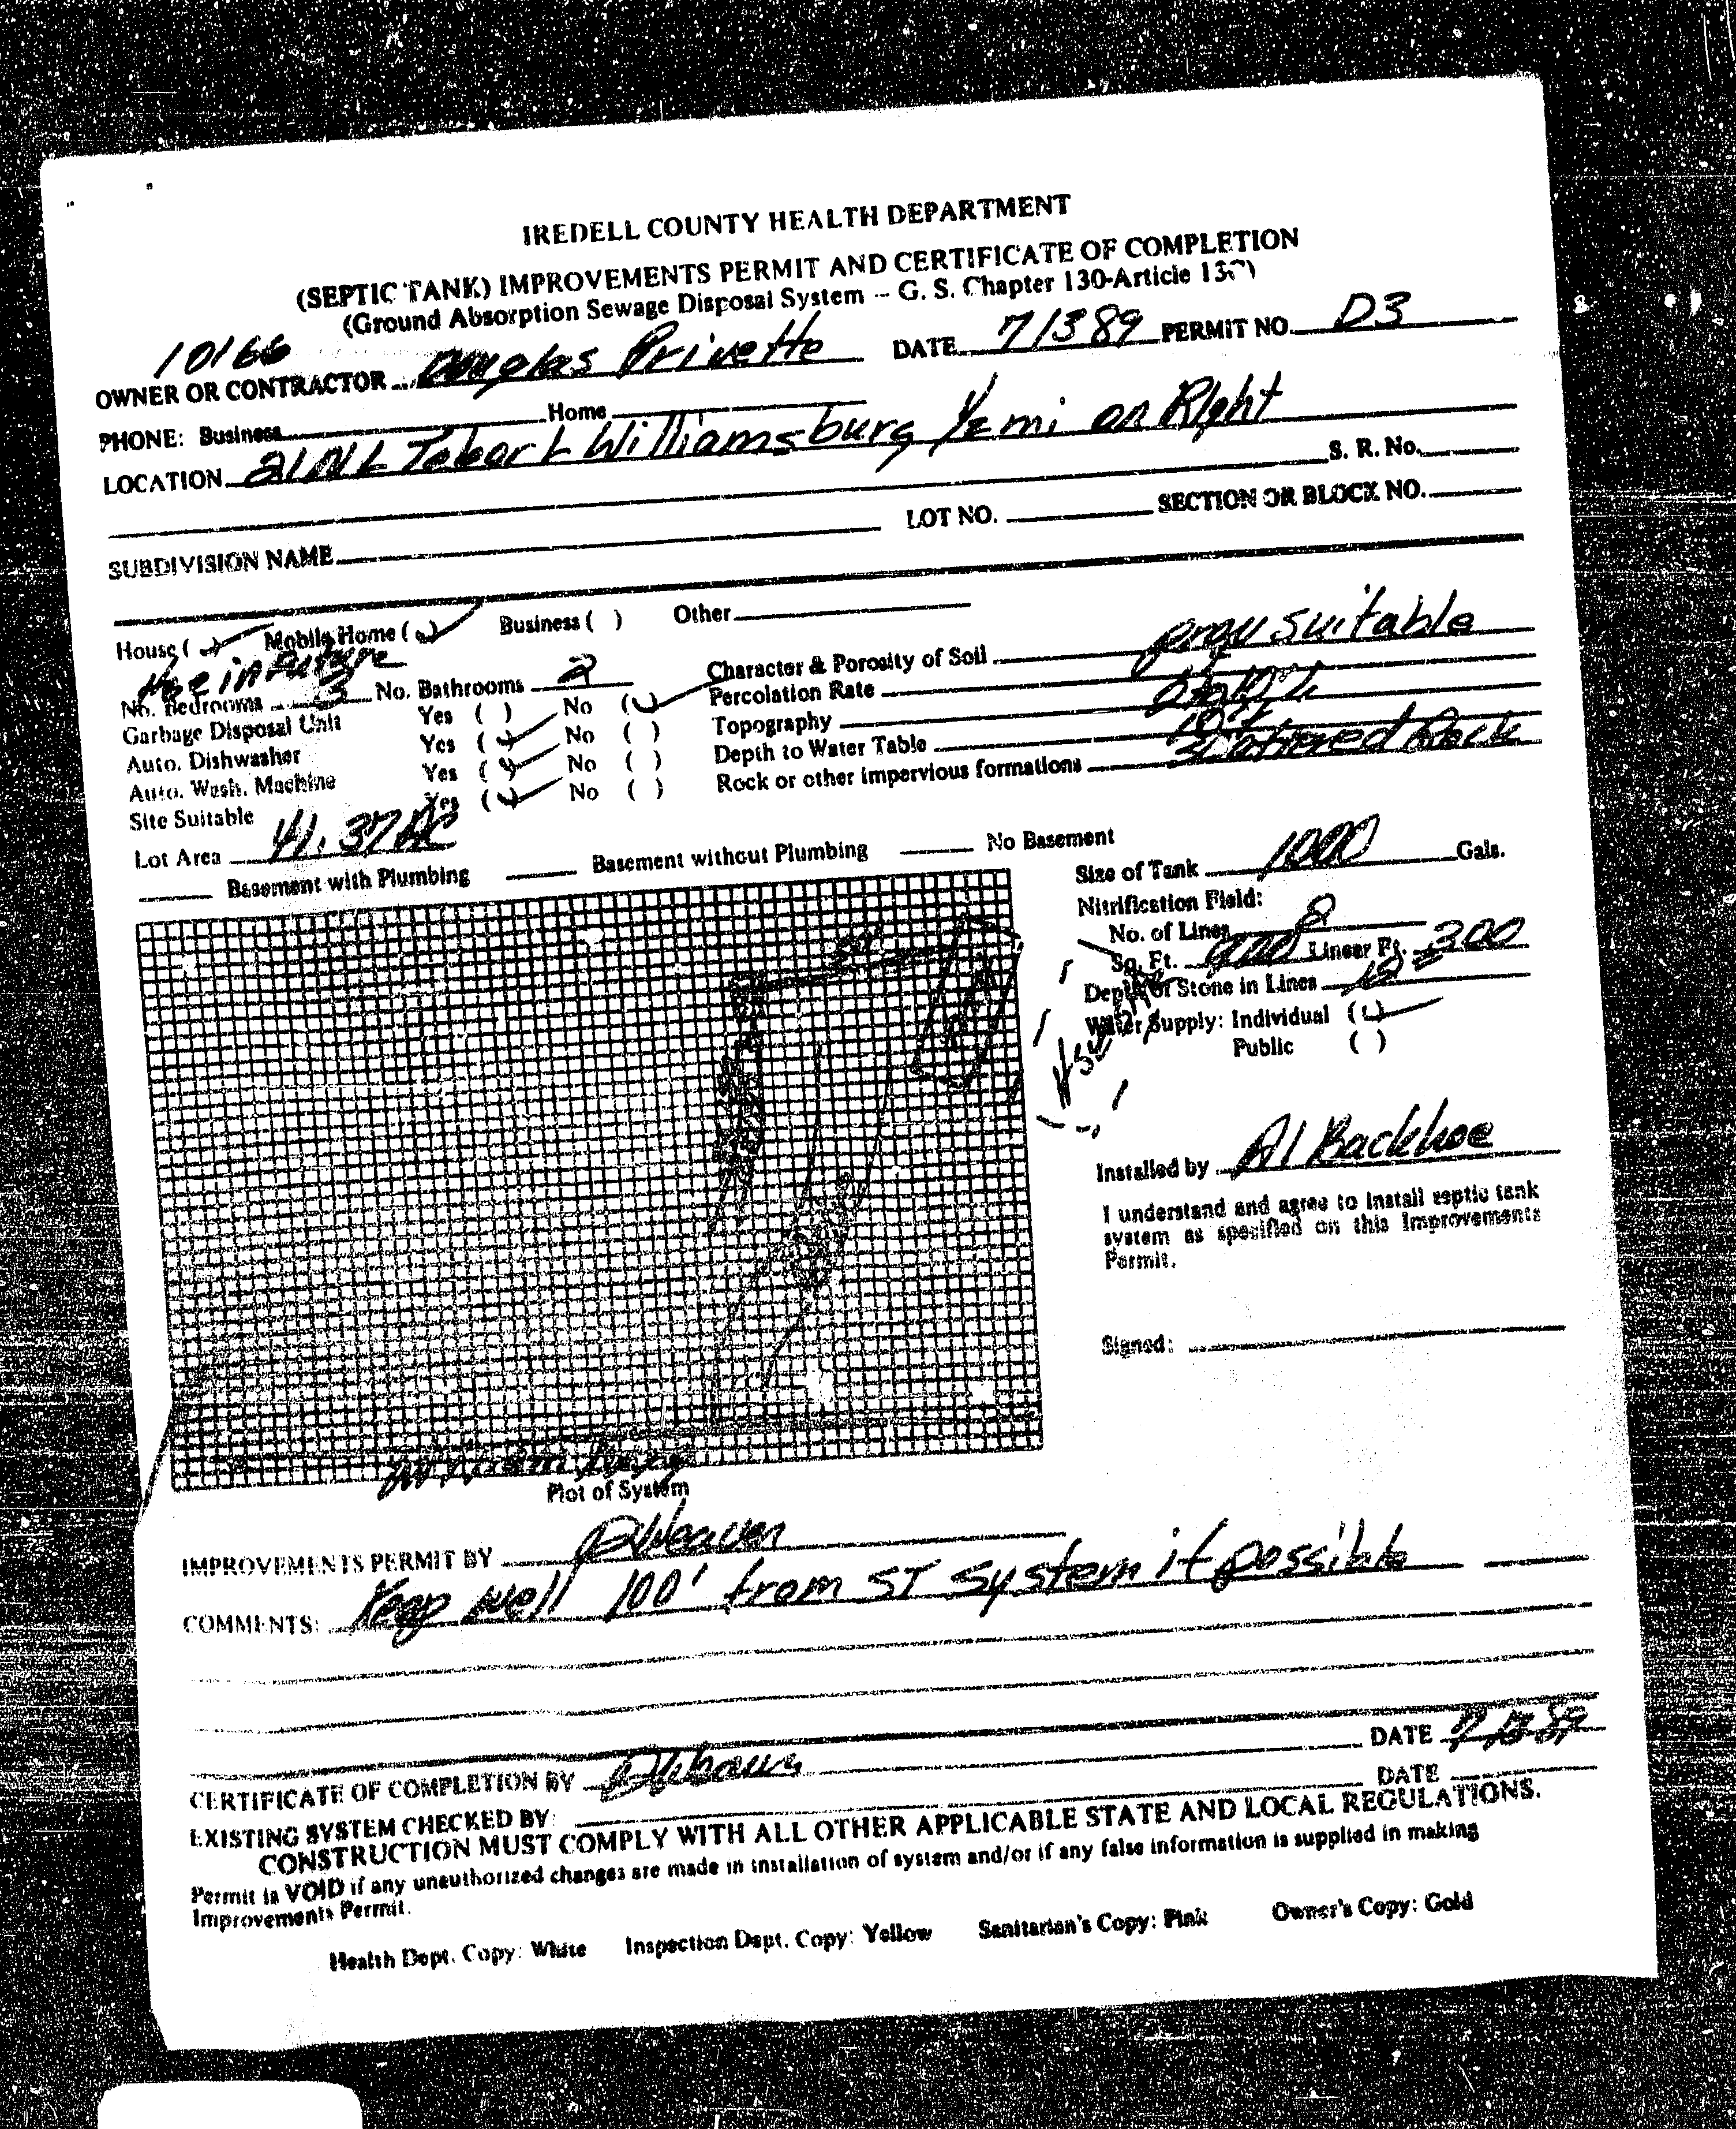 IREDELL COUNTY HEALTH DEPARTMENT
(SEPTIC TANK) IMPROVEMENTS PERMIT AND CERTIFICATE OF COMPLETION
(Ground Absorption Sewage Disposal System -- G. S. Chapter 130-Article 13C)
10166
OWNER OR CONTRACTOR Douglas Privette DATE 71389 PERMIT NO. D3
PHONE: Business Home
LOCATION 21N L Tabor L Williamsburg 1/2 mi on Right
S. R. No.
SUBDIVISION NAME LOT NO. SECTION OR BLOCK NO.
House ( ) Mobile Home ( ) Business ( ) Other
in future
No. Bedrooms 3 No. Bathrooms 2
Garbage Disposal Unit Yes ( ) No ( )
Auto. Dishwasher Yes ( ) No ( )
Auto. Wash. Machine Yes ( ) No ( )
Site Suitable Yes ( ) No ( )
Lot Area 41.37 AC
Character & Porosity of Soil prov suitable
Percolation Rate
Topography
Depth to Water Table
Rock or other impervious formations Rock
Basement with Plumbing Basement without Plumbing No Basement
Size of Tank 1000 Gals.
Nitrification Field:
No. of Lines 8
Sq. Ft. 900 Linear Ft. 300
Depth of Stone in Lines 12
Water Supply: Individual ( )
Public ( )
Installed by Al Backhoe
I understand and agree to install septic tank
system as specified on this Improvements
Permit.
Signed:
Plot of System
IMPROVEMENTS PERMIT BY RWeaver
COMMENTS: Keep well 100' from ST System if possible
CERTIFICATE OF COMPLETION BY DATE
EXISTING SYSTEM CHECKED BY: DATE
CONSTRUCTION MUST COMPLY WITH ALL OTHER APPLICABLE STATE AND LOCAL REGULATIONS.
Permit is VOID if any unauthorized changes are made in installation of system and/or if any false information is supplied in making
Improvements Permit.
Health Dept. Copy: White Inspection Dept. Copy: Yellow Sanitarian's Copy: Pink Owner's Copy: Gold